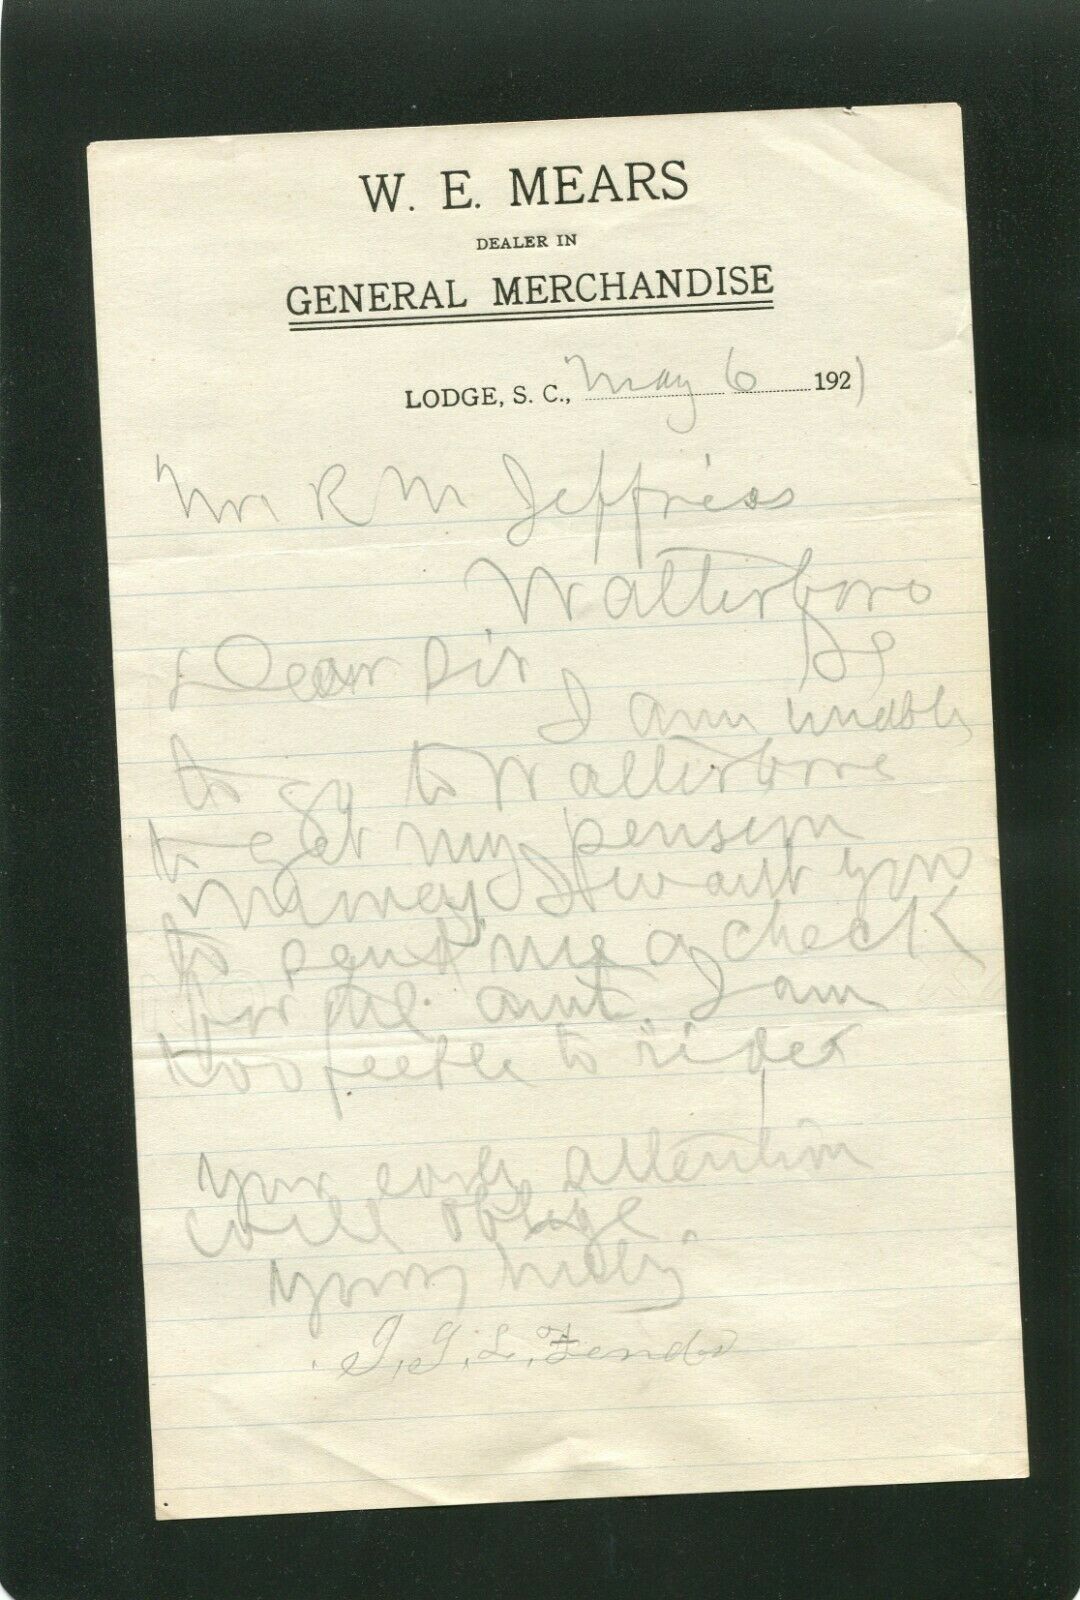 W. E. MEARS
DEALER IN
GENERAL MERCHANDISE
LODGE, S. C., May 6 1921
Mr. R M Jeffries
Walterboro
Dear Sir
I am unable
to go to Walterboro
to get my pension
money I want you
to me a check
for the amt. I am
too feeble to
your early attention
will oblige.
yours truly
J. L.